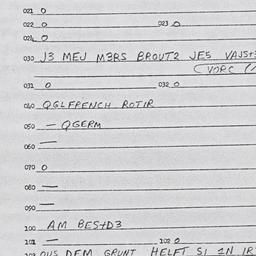 021 0
022 0 023 0
024 0
030 J3 MEJ M3RS BROUT2 JES VAJST3
031 0 032 0
040 QGLFRENCH ROTIR
050 — QGERM
060 —
070 0
080 —
090 —
100 AM BEST D3
101 — 102 0
103 OUS DEM GRUNT HELFT SI IN IR